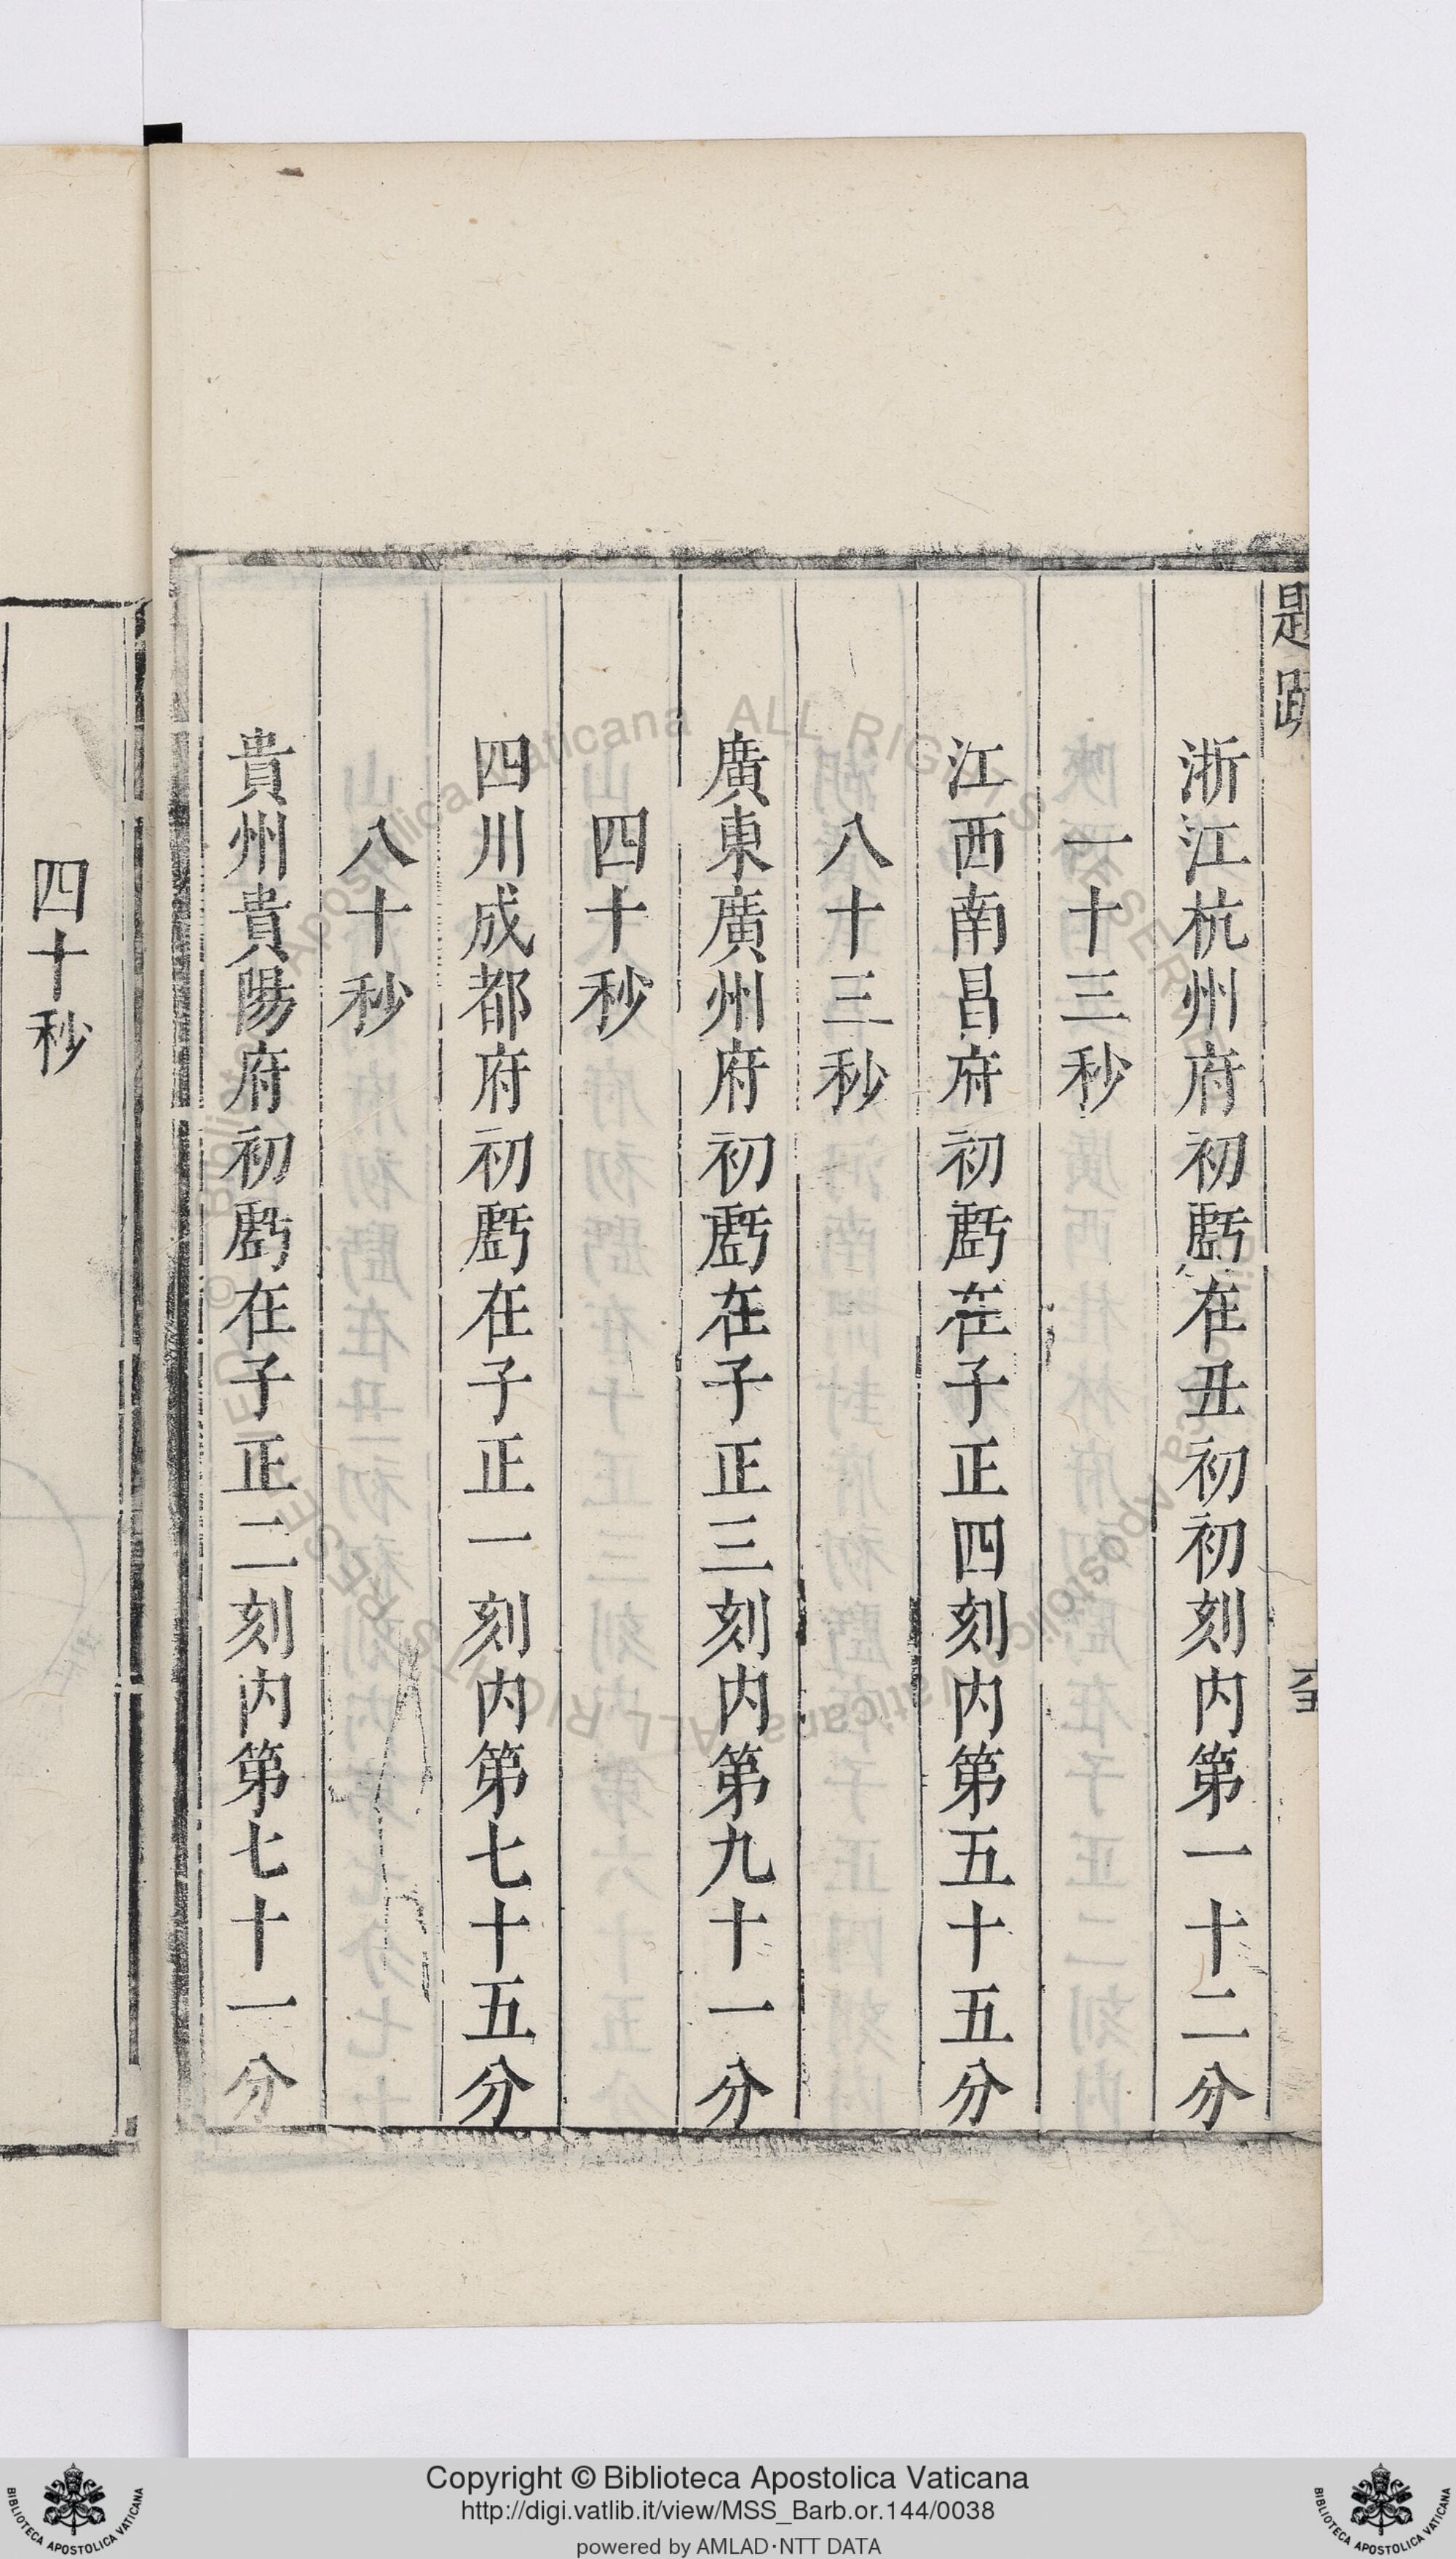 題䟽
浙江杭州府初虧在丑初初刻内第一十二分
一十三秒
江西南昌府初虧在子正四刻内第五十五分
八十三秒
廣東廣州府初虧在子正三刻内第九十一分
四十秒
四川成都府初虧在子正一刻内第七十五分
八十秒
貴州貴陽府初虧在子正二刻内第七十一分
四十秒
Copyright © Biblioteca Apostolica Vaticana
http://digi.vatlib.it/view/MSS_Barb.or.144/0038
powered by AMLAD·NTT DATA
BIBLIOTECA APOSTOLICA VATICANA
BIBLIOTECA APOSTOLICA VATICANA